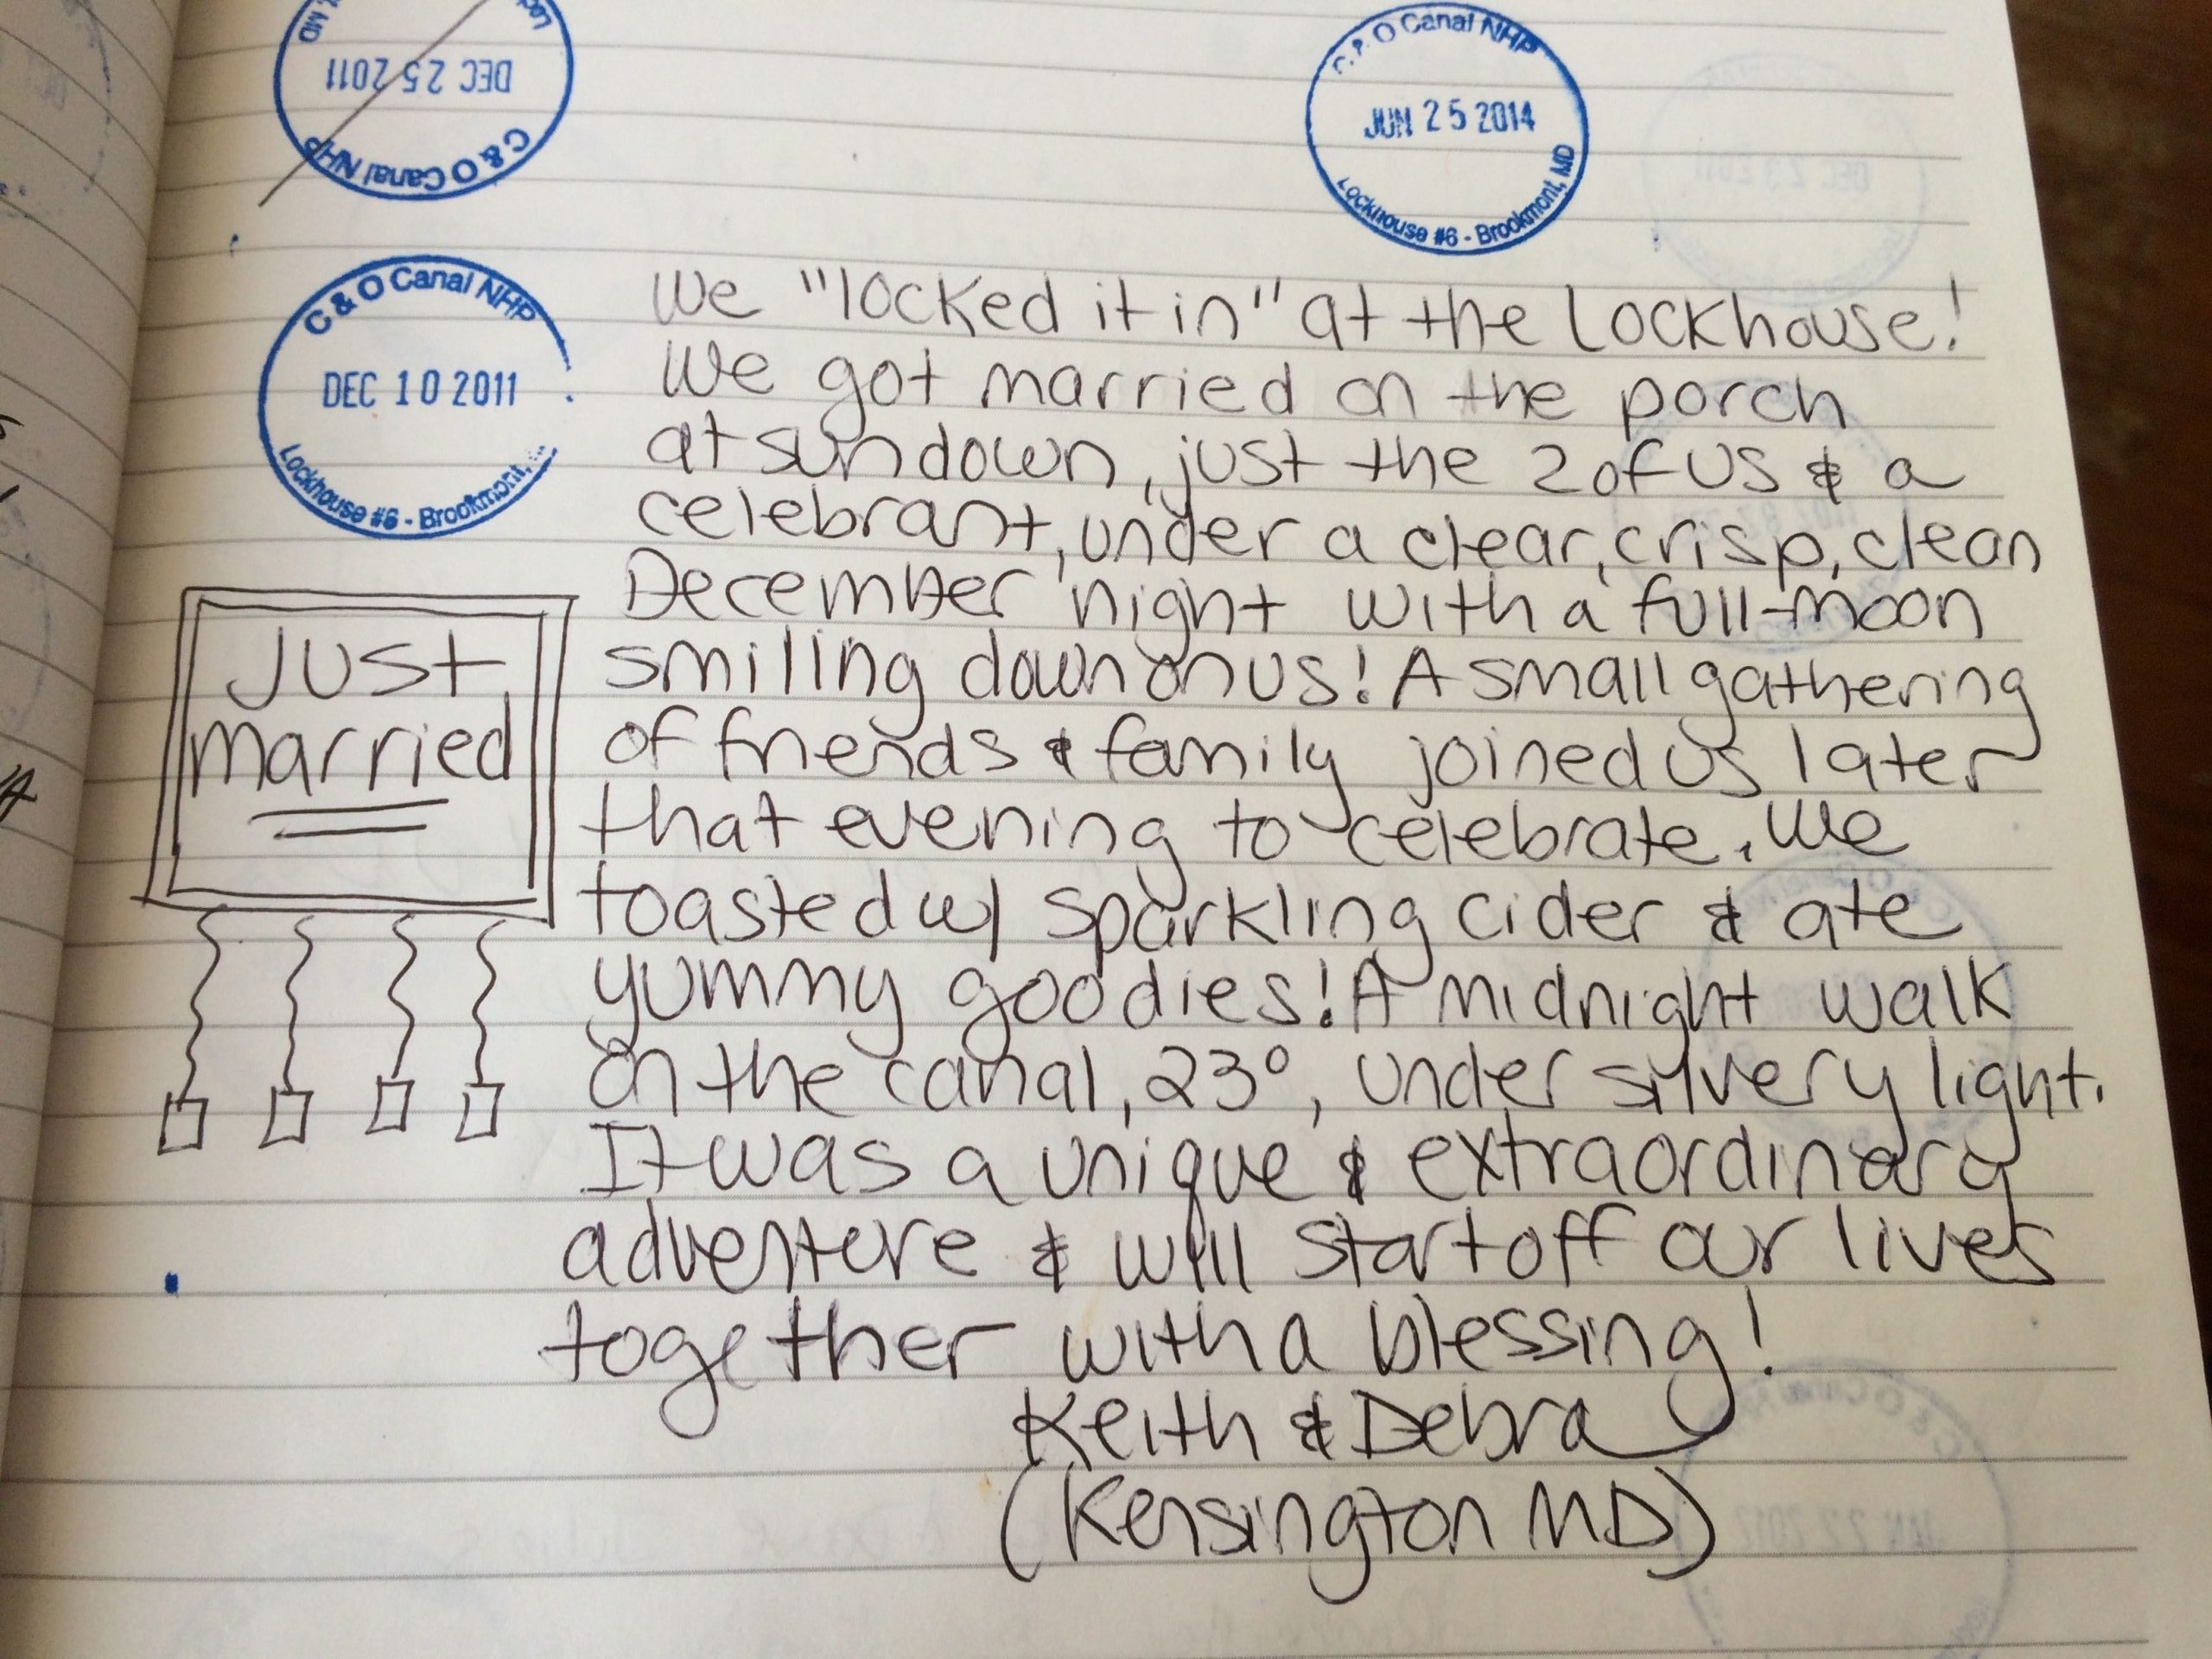 DEC 25 2011
C & O Canal NHP
C & O Canal NHP
JUN 25 2014
Lockhouse #6 - Brookmont, MD
C & O Canal NHP
DEC 10 2011
Lockhouse #6 - Brookmont,
Just
married
We "locked it in" at the Lockhouse!
We got married on the porch
at sundown, just the 2 of us & a
celebrant, under a clear, crisp, clean
December night with a full-moon
smiling down on us! A small gathering
of friends & family joined us later
that evening to celebrate. We
toasted w/ sparkling cider & ate
yummy goodies! A midnight walk
on the canal, 23°, under silvery light.
It was a unique & extraordinary
adventure & will start off our lives
together with a blessing!
Keith & Debra
(Kensington MD)